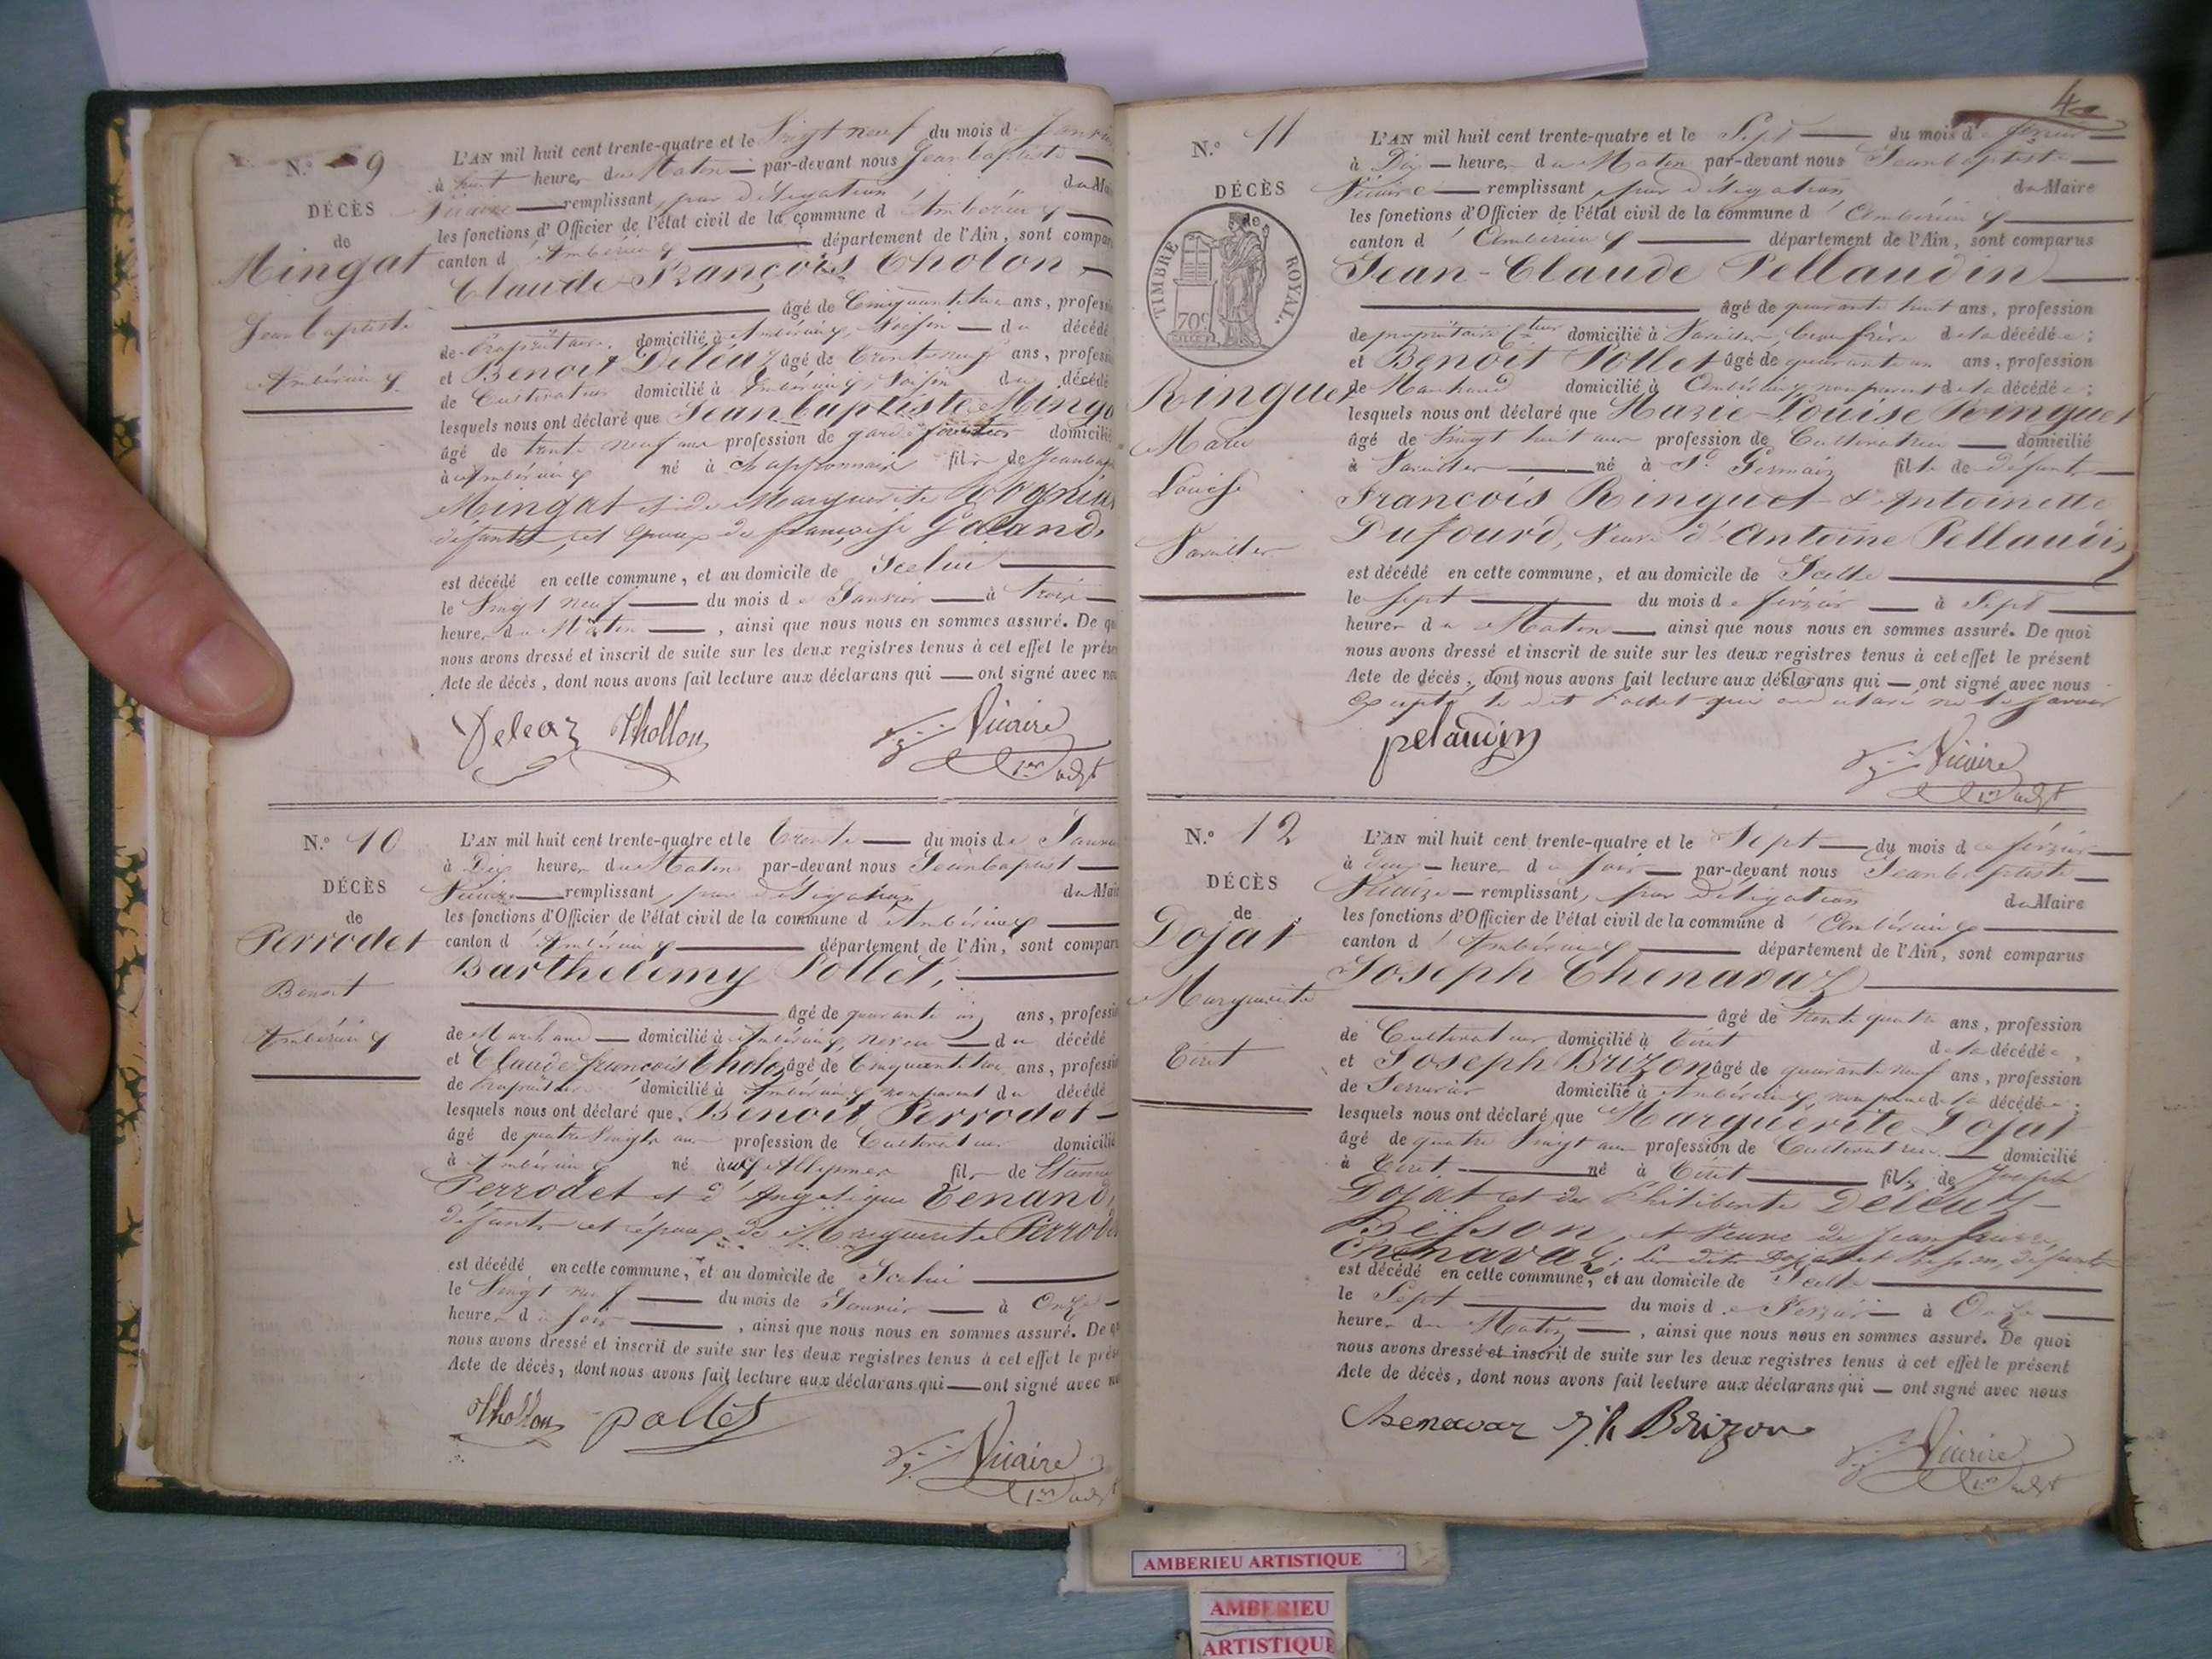 N.° 9
DÉCÈS
de
Mingat
Jean baptiste
Ambérieux
L'AN mil huit cent trente-quatre et le Vingt neuf du mois de Janvier
à huit heures du Matin par-devant nous Jean baptiste
Vicaire remplissant, par délégation du Maire
les fonctions d'Officier de l'état civil de la commune d'Ambérieux
canton d'Ambérieux département de l'Ain, sont comparus
Claude François Tholon
âgé de Cinquante ans, profession
de Propriétaire domicilié à Ambérieux, Voisin du décédé
et Benoit Deléaz âgé de trente neuf ans, profession
de Cultivateur domicilié à Ambérieux, Voisin du décédé
lesquels nous ont déclaré que Jean baptiste Mingat
âgé de trente neuf ans profession de garde forestier domicilié
à Ambérieux né à fils de Jean bap
Mingat et de Marguerite
défunts, et époux de françoise Galand,
est décédé en cette commune, et au domicile de Icelui
le Vingt neuf du mois de Janvier à trois
heures du Matin, ainsi que nous nous en sommes assuré. De quoi
nous avons dressé et inscrit de suite sur les deux registres tenus à cet effet le présent
Acte de décès, dont nous avons fait lecture aux déclarans qui ont signé avec nous
Deleaz Thollon Vicaire
1er adjt
N.° 10
DÉCÈS
de
Perrodet
Benoit
Ambérieux
L'AN mil huit cent trente-quatre et le trente du mois de Janvier
à Dix heures du Matin par-devant nous Jean baptiste
Vicaire remplissant, par délégation du Maire
les fonctions d'Officier de l'état civil de la commune d'Ambérieux
canton d'Ambérieux département de l'Ain, sont comparus
Barthélemy Pollet,
âgé de quarante ans, profession
de Marchand domicilié à Ambérieux, neveu du décédé
et Claude françois Tholon âgé de Cinquante ans, profession
de Propriétaire domicilié à Ambérieux non parent du décédé
lesquels nous ont déclaré que Benoit Perrodet
âgé de quatre Vingts ans profession de Cultivateur domicilié
à Ambérieux né aux Allymes fils de Etienne
Perrodet et d'Angélique Tenand,
défunts et époux de Marguerite Perrodet
est décédé en cette commune, et au domicile de Icelui
le Vingt neuf du mois de Janvier à Onze
heures du Soir, ainsi que nous nous en sommes assuré. De quoi
nous avons dressé et inscrit de suite sur les deux registres tenus à cet effet le présent
Acte de décès, dont nous avons fait lecture aux déclarans qui ont signé avec nous
Thollon pollet Vicaire
1er adjt
4
N.° 11
DÉCÈS
de
TIMBRE ROYAL.
70c
Ringuet
Marie
Louise
Vareilles
L'AN mil huit cent trente-quatre et le Sept du mois de février
à Dix heures du Matin par-devant nous Jean baptiste
Vicaire remplissant par délégation du Maire
les fonctions d'Officier de l'état civil de la commune d'Ambérieux
canton d'Ambérieux département de l'Ain, sont comparus
Jean-Claude Pellaudin
âgé de quarante huit ans, profession
de propriétaire Cteur domicilié à Vareilles, beau frère de la décédée;
et Benoit Pollet âgé de quarante un ans, profession
de Marchand domicilié à Ambérieux, non parent de la décédée;
lesquels nous ont déclaré que Marie-Louise Ringuet
âgé de Vingt huit ans profession de Cultivatrice domicilié
à Vareilles né à St Germain fille de défunts
François Ringuet & Antoinette
Dufourd, Veuve d'Antoine Pellaudin
est décédé en cette commune, et au domicile de Icelle
le sept du mois de février à Sept
heures du Matin ainsi que nous nous en sommes assuré. De quoi
nous avons dressé et inscrit de suite sur les deux registres tenus à cet effet le présent
Acte de décès, dont nous avons fait lecture aux déclarans qui ont signé avec nous
Excepté le dit Pollet qui a déclaré ne le savoir
pelaudin Vicaire
1er adjt
N.° 12
DÉCÈS
de
Dojat
Marguerite
Tiret
L'AN mil huit cent trente-quatre et le Sept du mois de février
à deux heures du Soir par-devant nous Jean baptiste
Vicaire remplissant, par délégation du Maire
les fonctions d'Officier de l'état civil de la commune d'Ambérieux
canton d'Ambérieux département de l'Ain, sont comparus
Joseph Chenavaz
âgé de trente quatre ans, profession
de Cultivateur domicilié à Tiret de la décédée,
et Joseph Brizon âgé de quarante neuf ans, profession
de Serrurier domicilié à Ambérieux, non parent de la décédée;
lesquels nous ont déclaré que Marguerite Dojat
âgé de quatre Vingt ans profession de Cultivatrice domicilié
à Tiret né à Tiret fille de Joseph
Dojat et de Philiberte Deleaz
Besson, et Veuve de Jean
Chenavaz; les dits Dojat et Besson, défunts
est décédé en cette commune, et au domicile de Icelle
le Sept du mois de Février à Onze
heures du Matin, ainsi que nous nous en sommes assuré. De quoi
nous avons dressé et inscrit de suite sur les deux registres tenus à cet effet le présent
Acte de décès, dont nous avons fait lecture aux déclarans qui ont signé avec nous
Chenavaz Jh Brizon Vicaire
1er adjt
AMBERIEU ARTISTIQUE
AMBERIEU
ARTISTIQUE